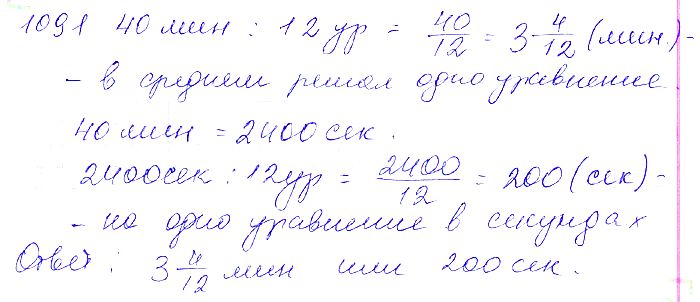 1091 40 мин : 12 ур = 40/12 = 3 4/12 (мин.) -
- в среднем решал одно уравнение
40 мин = 2400 сек.
2400 сек : 12 ур = 2400/12 = 200 (сек) -
- на одно уравнение в секундах
Ответ : 3 4/12 мин или 200 сек.